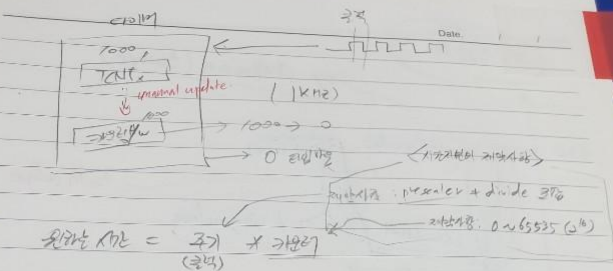 타이머
클럭
Date.
1000
TCNT
manual update
(1kHz)
1000
카운터 H/W
1000 → 0
→ 0 타임아웃
<시간지연의 제약사항>
제약사항: prescaler + divide
제약사항: 0~65535 (2¹⁶)
원하는 시간 = 주기 * 카운터
(클럭)